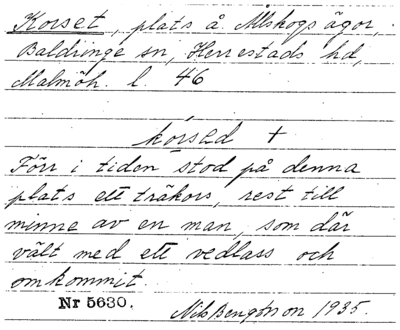 Korset, plats å Allskogs ägor,
Baldringe sn, Herrestads hd,
Malmöh. l. 46
kórsed +
Förr i tiden stod på denna
plats ett träkors, rest till
minne av en man, som där
vält med ett vedlass och
omkommit.
Nr 5630.
Nils Bengtsson 1935.